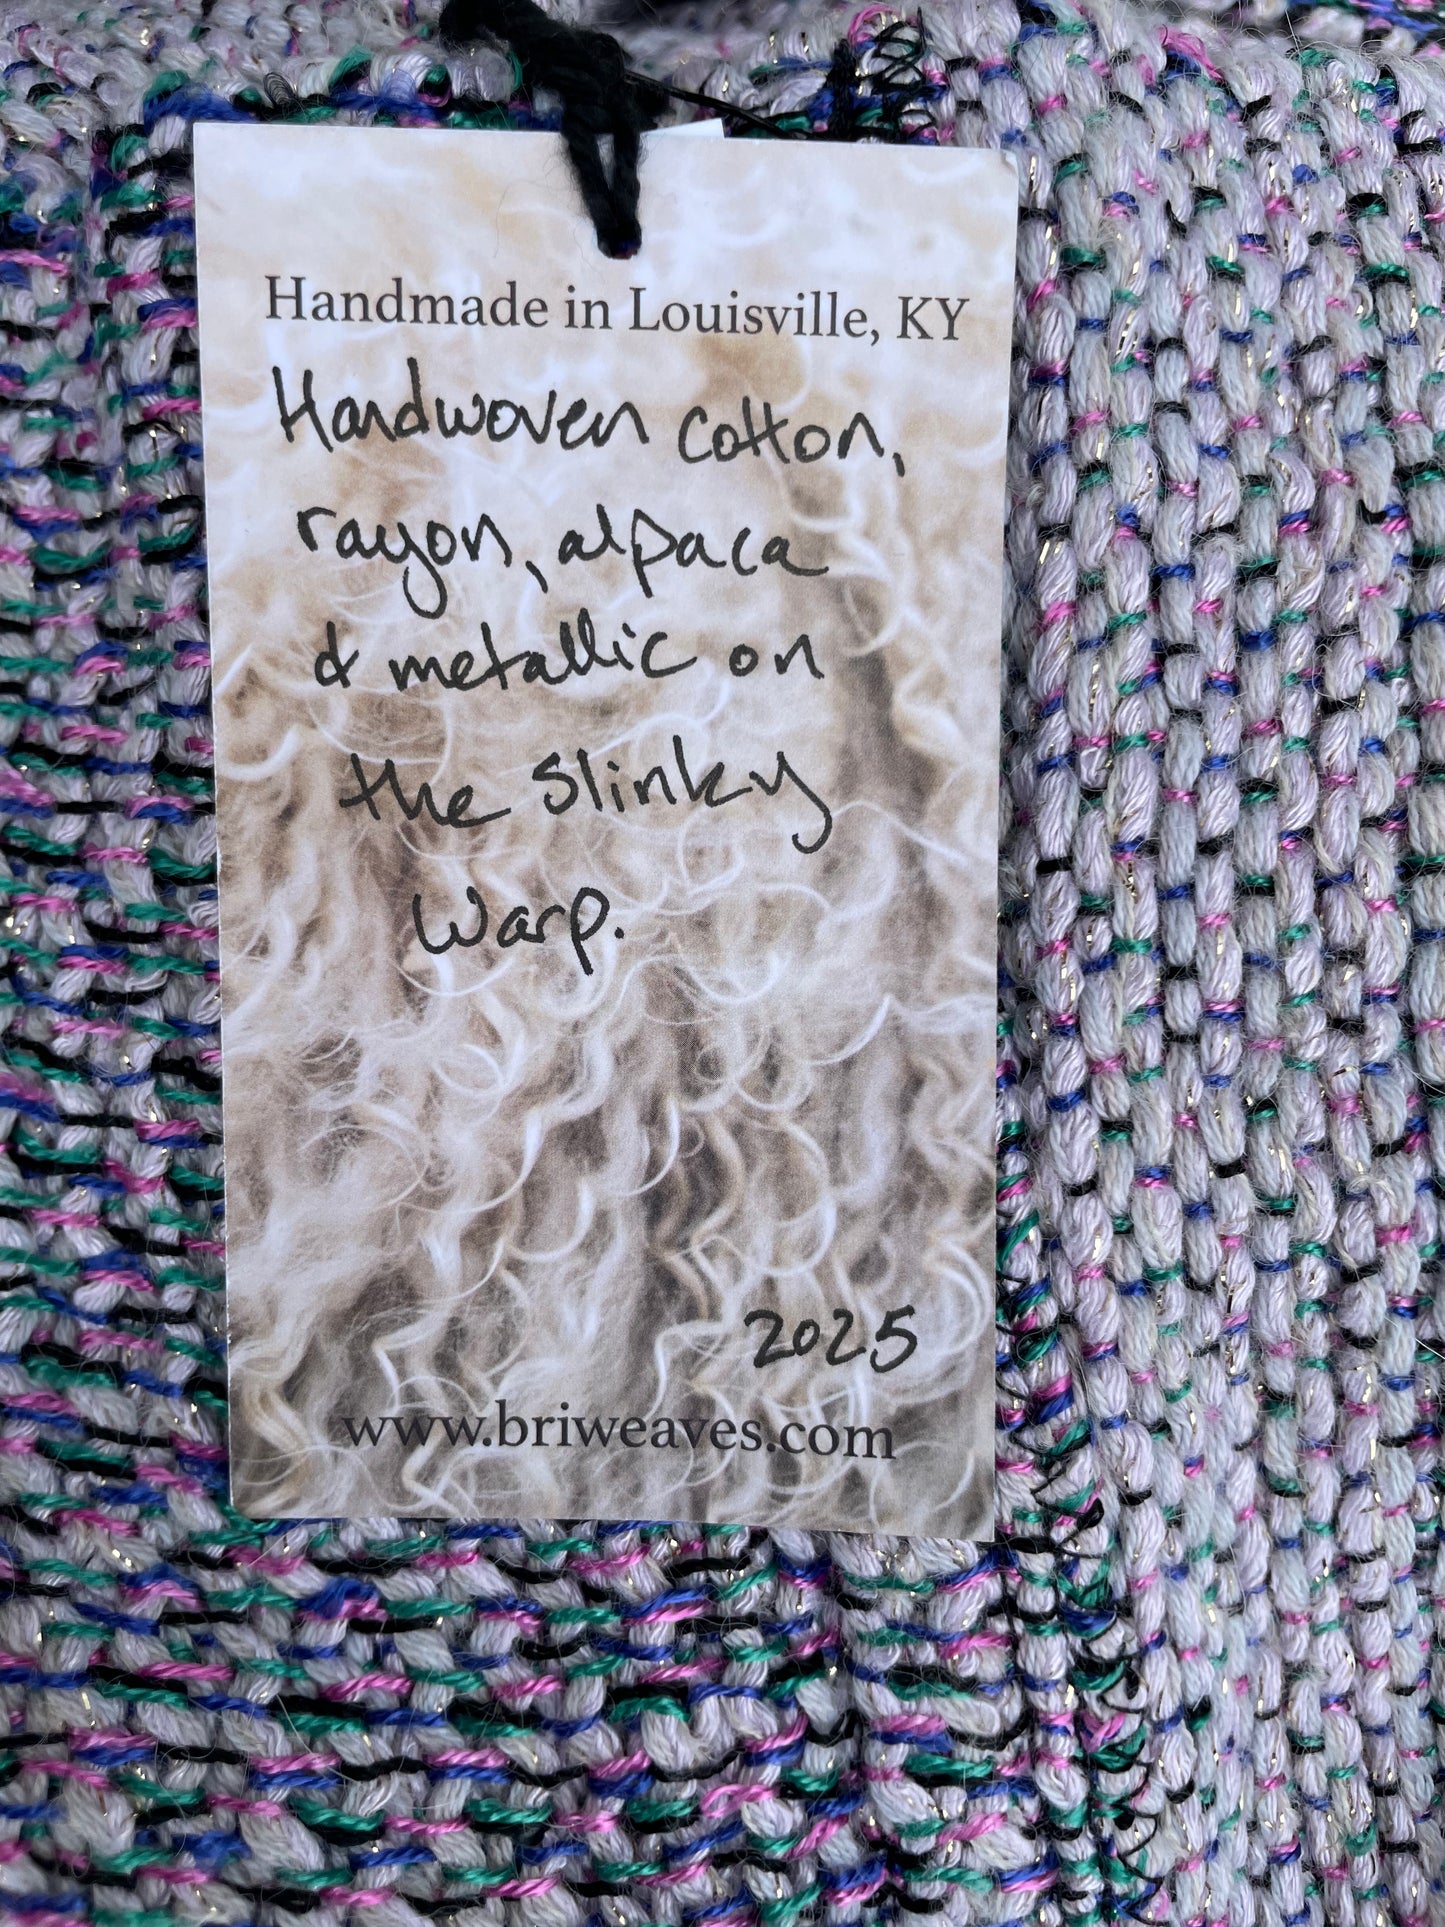 Handmade in Louisville, KY
Handwoven cotton,
rayon, alpaca
& metallic on
the slinky
warp.
2025
www.briweaves.com